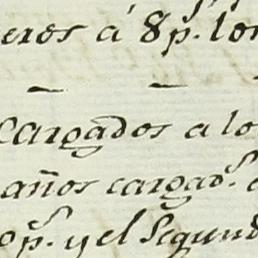 eros á 8 p.s los
cargados a lo
años cargad.s
op.s y el Segund